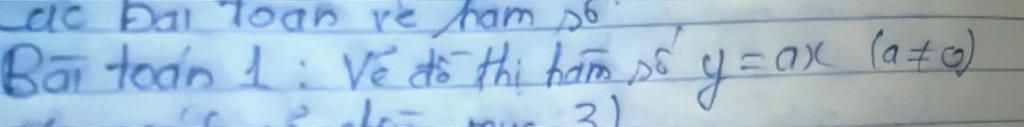 ac bài toán về hàm số
Bài toán 1: Vẽ đồ thị hàm số y = ax (a ≠ 0)
3)